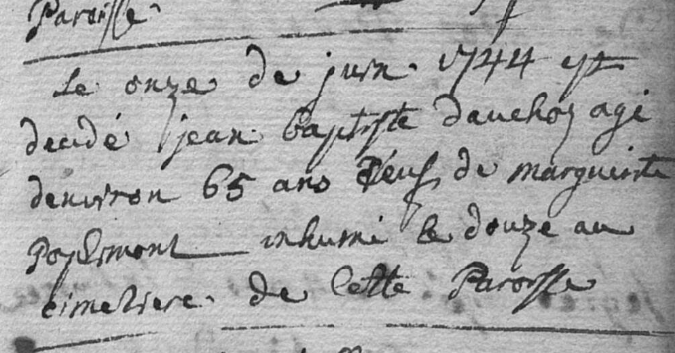 Paroisse
Le onze de juin 1744 est
decidé jean baptiste dauchoz agé
denviron 65 ans veuf de marguerite
inhumé le douze au
cimetiere de cette Paroisse